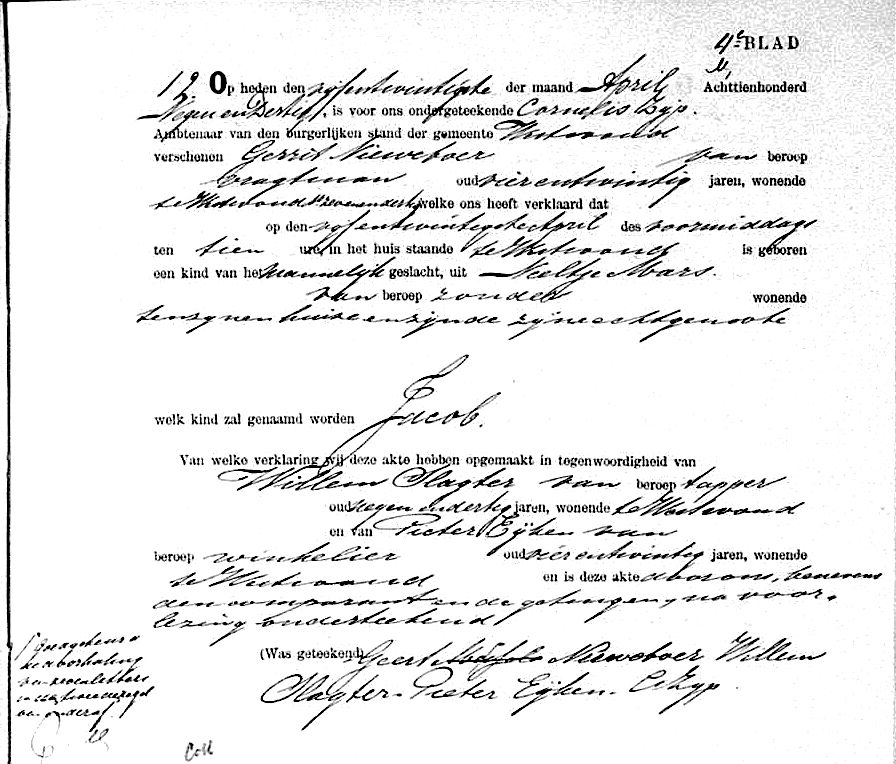 4e BLAD
12 Op heden den vyfentwintigste der maand April Achttienhonderd
Negen en Dertig, is voor ons ondergeteekende Cornelis Zyp.
Ambtenaar van den burgerlijken stand der gemeente Westwoud
verschenen Gerrit Nieweboer van beroep
vragtman oud vierentwintig jaren, wonende
te Westwoud welke ons heeft verklaard dat
op den vyfentwintigste April des voormiddags
ten tien ure, in het huis staande te Westwoud is geboren
een kind van het mannelijk geslacht, uit Neeltje Mars.
van beroep zonder wonende
tenzynen huize en zijnde zijne echtgenoote
welk kind zal genaamd worden Jacob.
Van welke verklaring wij deze akte hebben opgemaakt in tegenwoordigheid van
Willem Slagter van beroep tapper
oud negenendertig jaren, wonende te Westwoud
en van Pieter Eyken van
beroep winkelier oud vierentwintig jaren, wonende
te Westwoud en is deze akte door ons, benevens
den comparant en de getuigen, na voor-
lezing onderteekend
(Was geteekend) Geert Nieweboer Willem
Slagter - Pieter Eyken - C. Zyp.